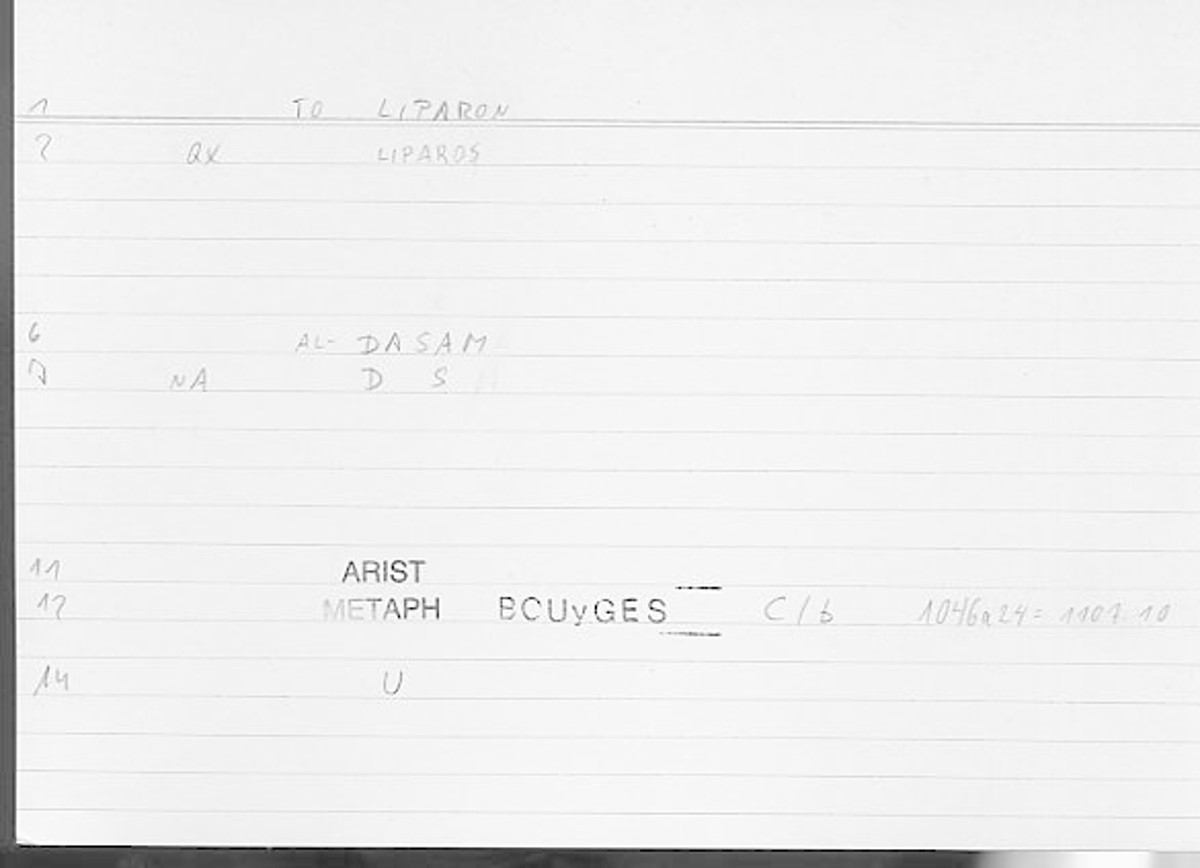 1 TO LIPARON
2 QX LIPAROS
6 AL- DASAM
7 NA D S
11 ARIST
12 METAPH BOUyGES C/b 1046a24= 1107.10
14 U